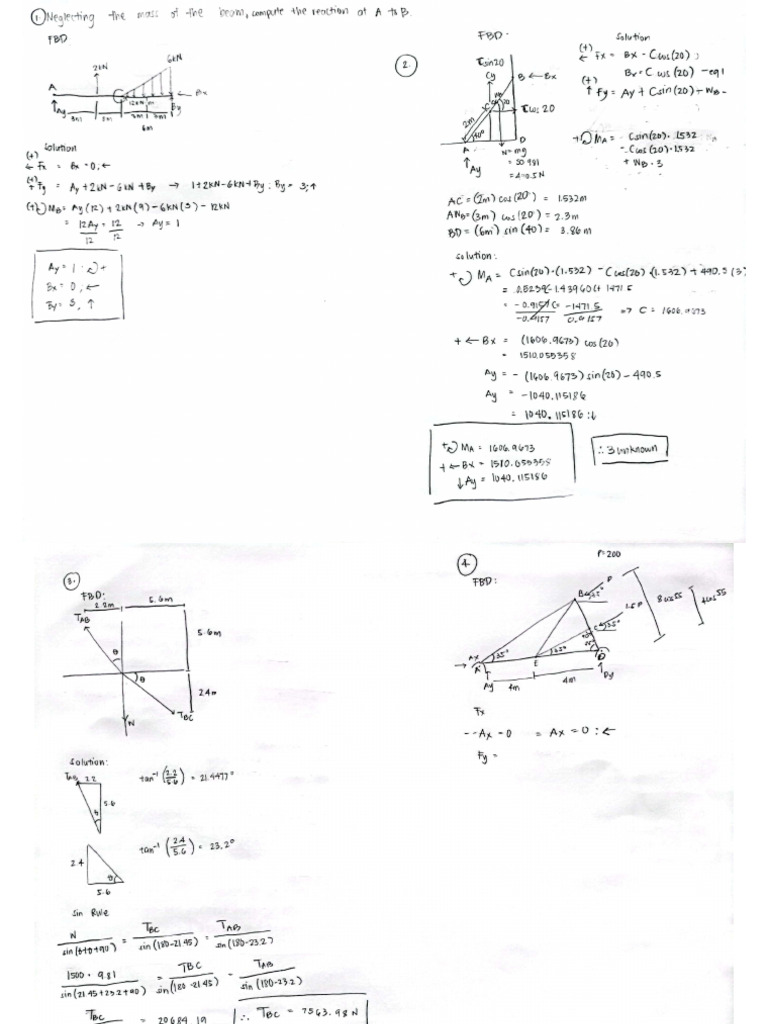 1. Neglecting the mass of the beam, compute the reaction at A to B.
FBD
2kN
6kN
A
Bx
Ay
12kN m
By
3m
3m
3m
3m
6m
solution
(+)
← Fx = Bx = 0; ←
(+)
↑ Fy = Ay + 2kN - 6kN + By → 1 + 2kN - 6kN + By : By = 3; ↑
(+) MB = Ay (12) + 2kN (9) - 6kN (3) - 12kN
= 12Ay = 12 → Ay = 1
12 12
Ay = 1
Bx = 0, ←
By = 3, ↑
2.
FBD:
Cy
B ← Bx
C
2m
40°
A
D
Ay
N = mg
= 50·981
solution
(+)
← Fx = Bx - C cos (20) ;
Bx = C cos (20) - eq1
(+)
↑ Fy = Ay + C sin (20) + WB -
+ MA = C sin (20) · 1.532
- C cos (20) · 1.532
+ WB · 3
AC = (2m) cos (20°) = 1.532m
ANB = (3m) cos (20°) = 2.3m
BD = (6m) sin (40) = 3.86m
solution:
+ MA = C sin (20) · (1.532) - C cos (20) (1.532) + 490.5 (3)
⇒ C = 1606.9673
+ ← Bx = (1606.9673) cos (20)
= 1510.055358
Ay = - (1606.9673) sin (20) - 490.5
Ay = -1040.115186
= 1040.115186 : ↓
+ MA = 1606.9673
+ ← Bx = 1510.055358
↓ Ay = 1040.115186
∴ 3 unknown
3.
FBD:
2.2m
5.6m
TAB
θ
5.6m
θ
2.4m
TBC
W
Solution:
TAB 2.2
5.6
θ
tan⁻¹ (2.2/5.6) = 21.4477°
2.4
θ
5.6
tan⁻¹ (2.4/5.6) = 23.2°
sin Rule
W / sin (θ+θ+90) = TBC / sin (180-21.45) = TAB / sin (180-23.2)
1500 · 9.81 / sin (21.45+23.2+90) = TBC / sin (180-21.45) - TAB / sin (180-23.2)
TBC = 20684.19
∴ TBC = 7563.98 N
4.
P = 200
FBD:
B
P
1.5P
C
35°
8 cos 55
4 cos 55
Ax
A
35°
E
D
Ay
4m
4m
Dy
Fx
-- Ax - 0 = Ax = 0 : ←
Fy =